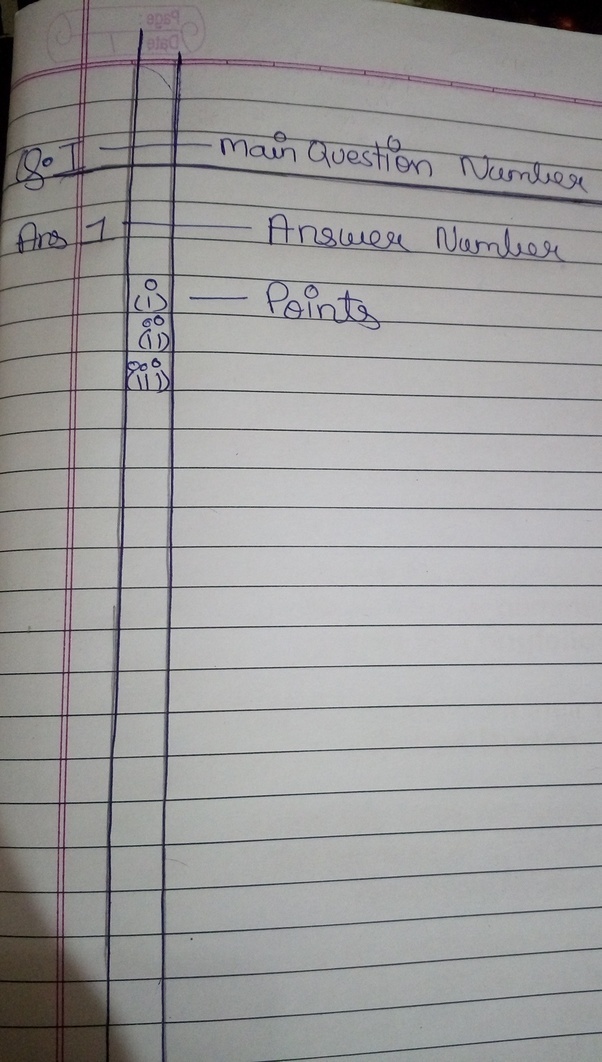 Page:
Date
Q.I — Main Question Number
Ans 1 — Answer Number
(i) — Points
(ii)
(iii)